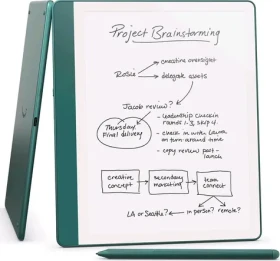 Project Brainstorming
creative oversight
Rosie
delegate assets
Jacob review?
- leadership check in
rounds 1-3, skip 4
Thursday
Final delivery
- check in with Laura
on turn around time
- copy review post-
launch
creative
concept
secondary
marketing
team
connect
LA or Seattle?
in person?
remote?